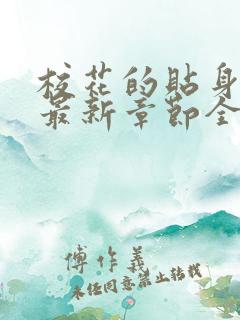 校花的贴身
最新章节全
傅作义
未经同意禁止转载